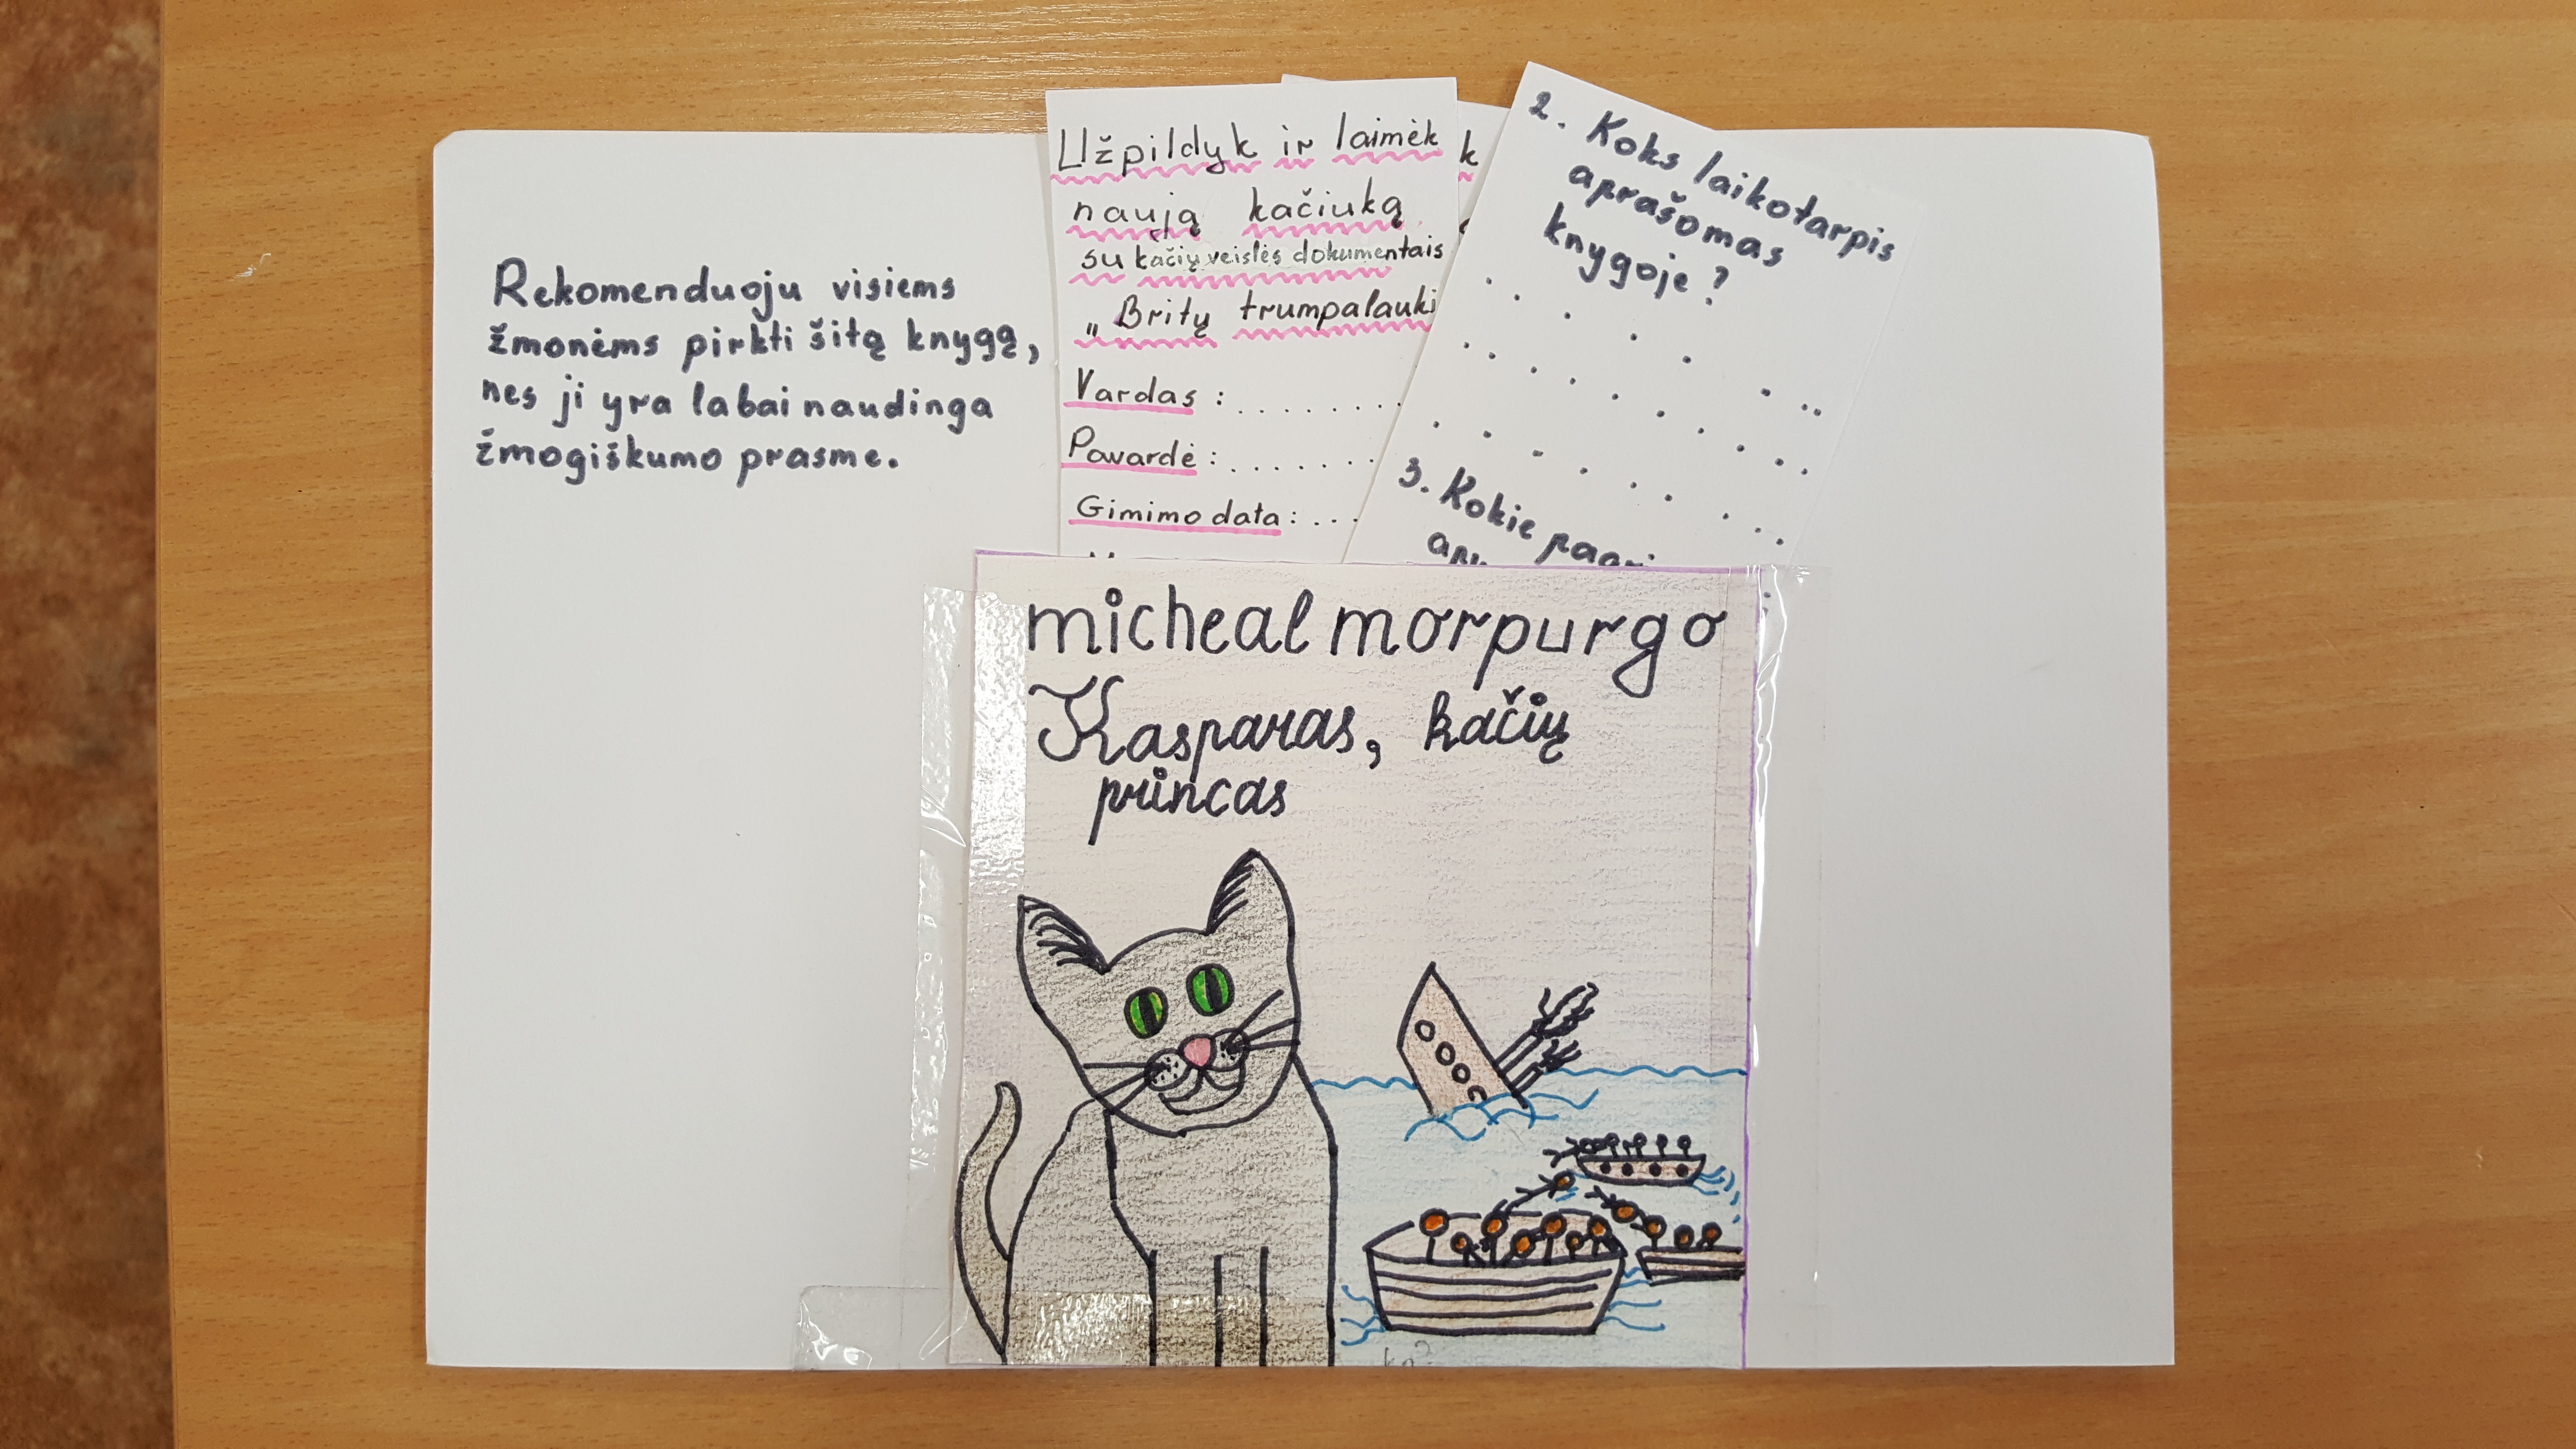 Rekomenduoju visiems
žmonėms pirkti šitą knygą,
nes ji yra labai naudinga
žmogiškumo prasme.
Užpildyk ir laimėk
naują kačiuką
su kačių veislės dokumentais
„Britų trumpalauki
Vardas : . . . . . . . .
Pavardė : . . . . . . .
Gimimo data : . . .
k
2. Koks laikotarpis
aprašomas
knygoje ?
3. Kokie
micheal morpurgo
Kasparas, kačių
princas